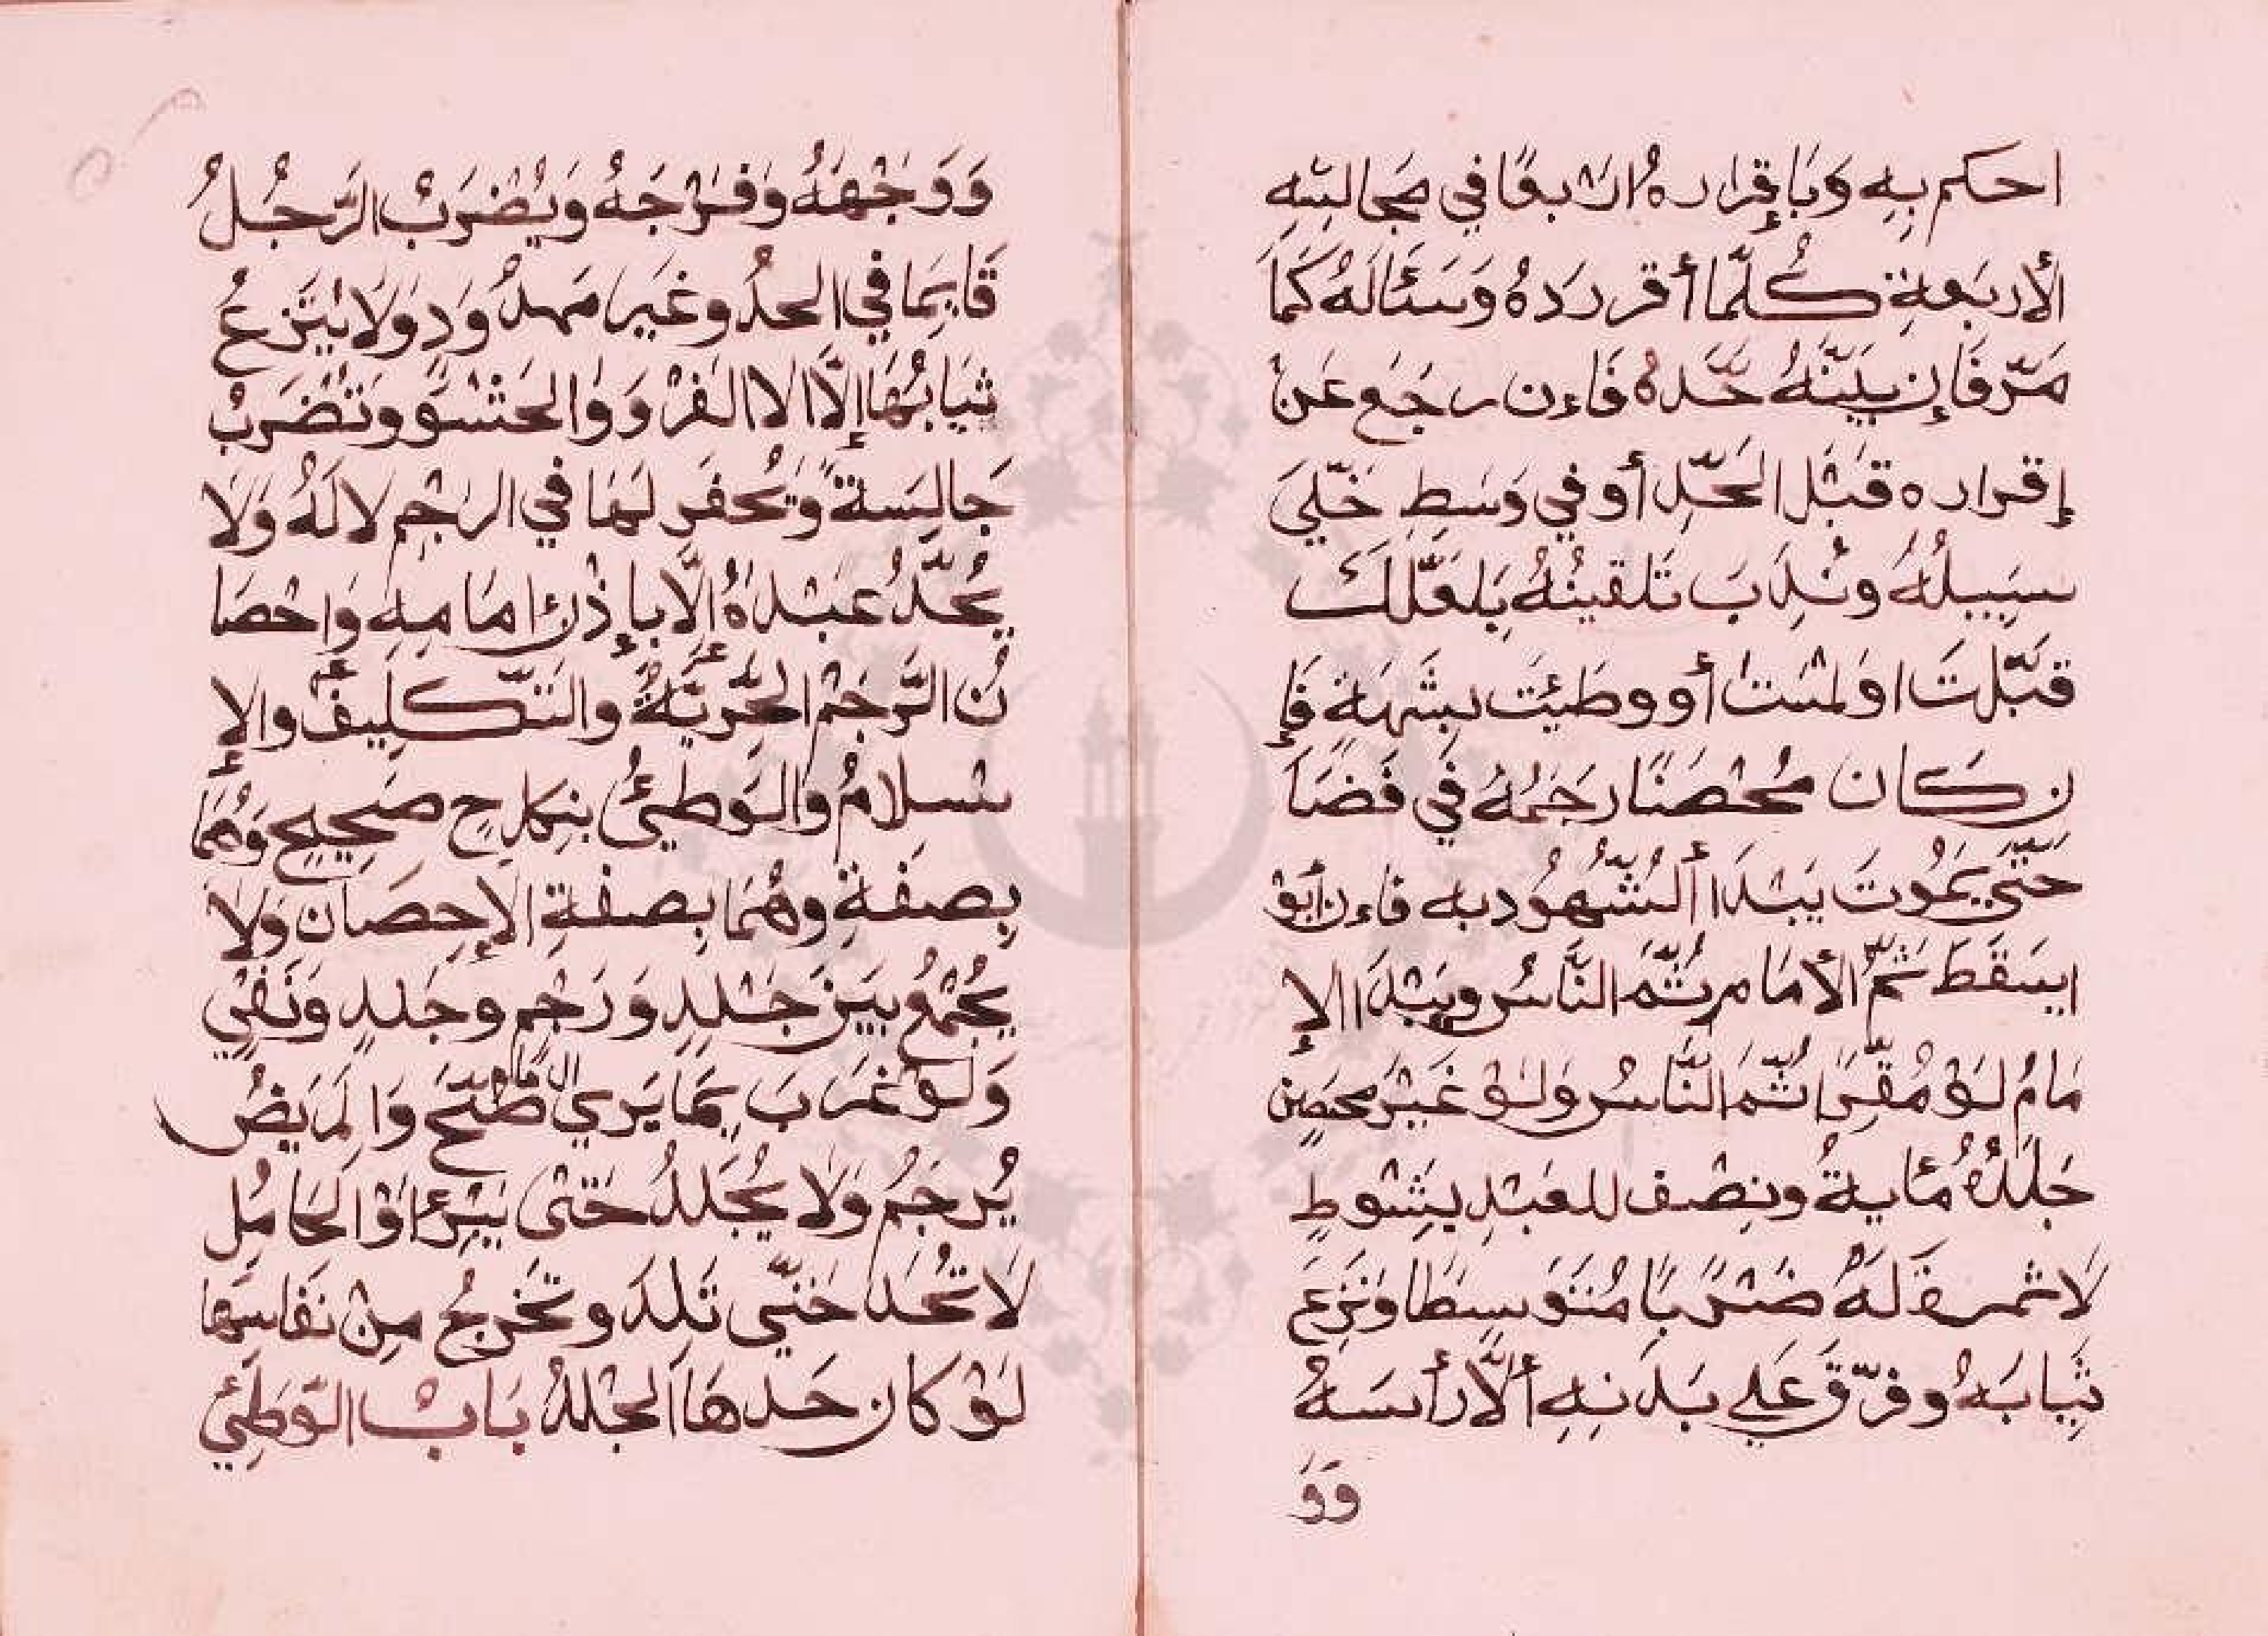 احكم بِهِ وَبَإقرارهُ ارْبعًا في مجالسِهِ
ألاربَعةِ كُلَّما أقر ردَهُ وَسَئَالَهُ كَمَا
مَرّ فَإن بيَّنَّهُ حَّدهُ فَاءن رجَع عَنْ
إقراره قبْل الحَّدِ أو في وَسَطِ خَلّيَ
سَبِيلُهُ وَنُدِبَ تَلقينُهُ بِلعَّلَكَ
قبّلتَ اوَ لمسْتَ أو وطَئِت بِشَبهَةٍ فَإ
ن كَان مُحْصَنًا رجَمُهُ فَي فَضَا
حَتّيَ يمَوُتَ يَبْدَا ألشُّهُود به فاءن أبَوْ
ا يسَقَطَ ثَمُّ الأمَام ثُمَّ النَّاسُ ويَبْدَا الإ
مَامُ لَوْ مُقّرًا ثُمَّ النَّاسُ وَلَوْ غَيْرَ محصَنٍ
جَلَدُهُ مُايةُ ونِصْف للعَبْدِ بِسْوطٍ
لَا ثمرة لَهُ ضَرْبًا مُتَوَسِطًا وَنَزَعَ
ثِيَابَهُ وفرّق عَلي بَدَنِهِ ألَّا رأسَهُ
وَوَ
وَوَجْهَهُ وَفرْجَهُ وَيُضْرَبْ الرَّجُلُ
قَايمَا في الحدُ وغَيرَ مَمدُودِ وَلَا يَنْزعُ
ثِيَابُهَا إلَّا الا الفَرْوَ وَالحَشْوَ وَتُضْرَبْ
جَالِسَةً وَيُحُفَر لهَا في الرجْمِ لا لَهُ وَلَا
يُحَّدُ عَبْدهُ إلَّا بإذْن امَامِهِ وَاحْصَا
نُ الرَّجَمْ الحُّريَّةُ والتَّكلِيفُ والإ
سْلامُ وَالوَطيُ بنِكاحٍ صَحِيحٍ وَهُمَا
بِصفَةٍ وهُمَا بِصفَةِ الإحِصَان وَلا
يُجْمَعُ بيَن جَلْدِ وَرَجْمِ وجَلدٍ وَنَفْيٍ
وَلَوْ غَرَبَ بِمَا يَري الامامُ صَحَّ وَالمَريضُ
يُرجَمُ وَلَا يُجْلَدُ حَتيْ يَبْرَا وَالحَامُل
لَا تُحَدَ حَتّي تَلِدَ وتخَرجُ مِنْ نفَاسَهَا
لَوْ كَان حَدهَا الجلْدُ بَابُ الوَطيَ